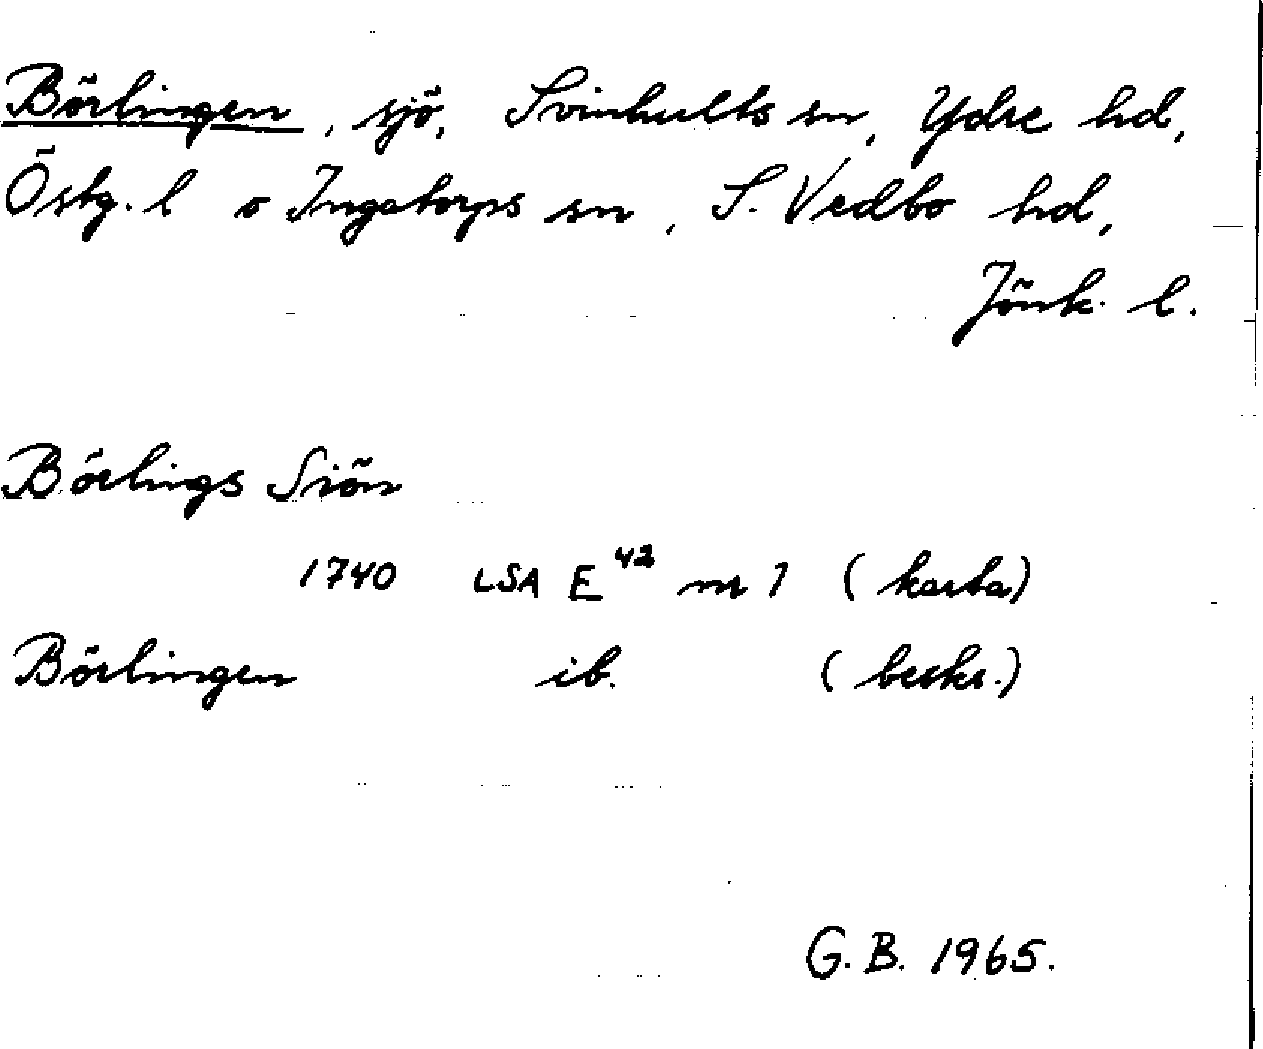 Börlingen, sjö, Svinhults sn, Ydre hd,
Östg. l o Ingatorps sn, S. Vedbo hd,
Jönk. l.
Börlings Siön
1740 LSA E 42 nr 1 (karta)
Börlingen ib. (beskr.)
G. B. 1965.